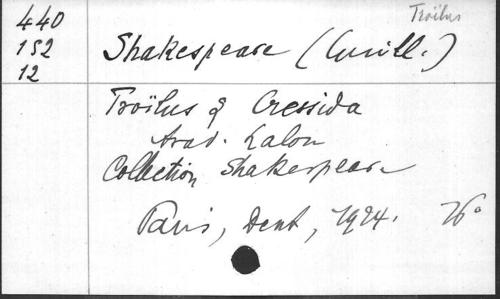 Troïlus
440
152
12
Shakespeare (Guill.)
Troïlus & Cressida
trad. Lalou
Collection Shakespeare
Paris, Dent, 1924.